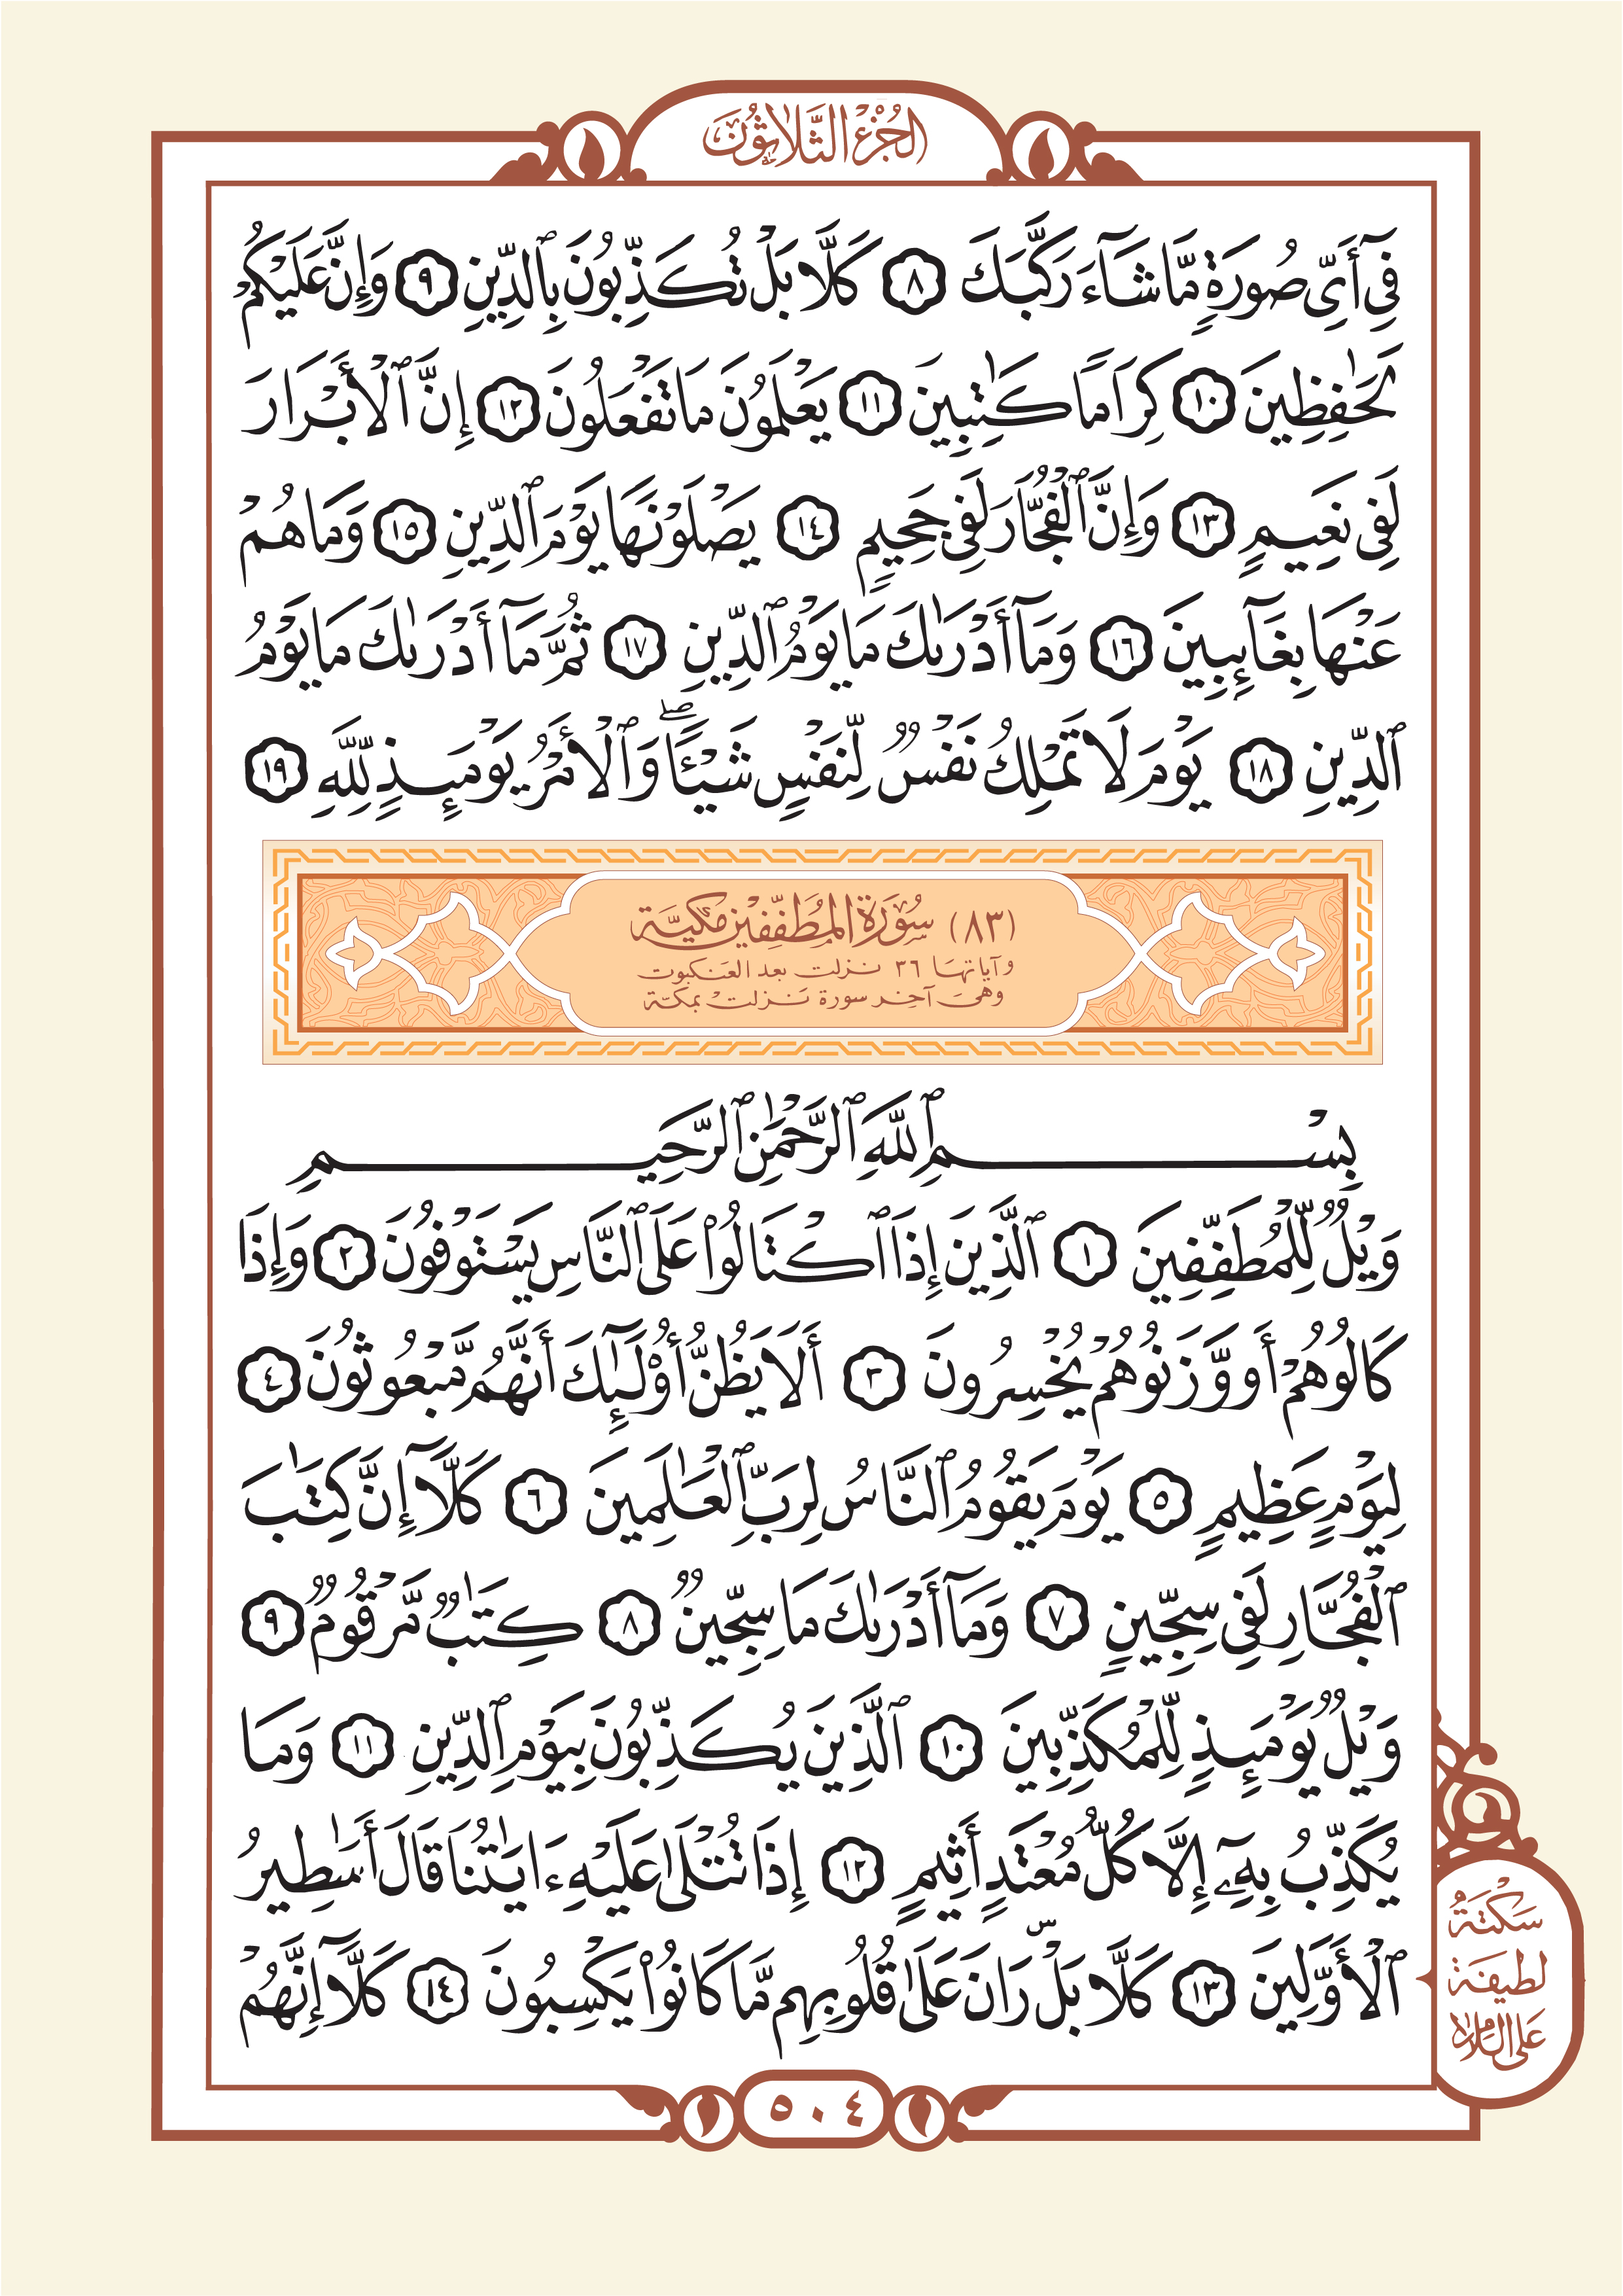 الجُزْءُ الثَّلَاثُونَ
فِىٓ أَىِّ صُورَةٍ مَّا شَآءَ رَكَّبَكَ ٨ كَلَّا بَلْ تُكَذِّبُونَ بِٱلدِّينِ ٩ وَإِنَّ عَلَيْكُمْ
لَحَٰفِظِينَ ١٠ كِرَامًا كَٰتِبِينَ ١١ يَعْلَمُونَ مَا تَفْعَلُونَ ١٢ إِنَّ ٱلْأَبْرَارَ
لَفِى نَعِيمٍ ١٣ وَإِنَّ ٱلْفُجَّارَ لَفِى جَحِيمٍ ١٤ يَصْلَوْنَهَا يَوْمَ ٱلدِّينِ ١٥ وَمَا هُمْ
عَنْهَا بِغَآئِبِينَ ١٦ وَمَآ أَدْرَىٰكَ مَا يَوْمُ ٱلدِّينِ ١٧ ثُمَّ مَآ أَدْرَىٰكَ مَا يَوْمُ
ٱلدِّينِ ١٨ يَوْمَ لَا تَمْلِكُ نَفْسٌ لِّنَفْسٍ شَيْـًٔاۖ وَٱلْأَمْرُ يَوْمَئِذٍ لِّلَّهِ ١٩
(٨٣) سُورَةُ المُطَفِّفِينَ مَكِّيَّة
وآياتها ٣٦ نزلت بعد العنكبوت
وهى آخر سورة نزلت بمكة
بِسْمِ ٱللَّهِ ٱلرَّحْمَٰنِ ٱلرَّحِيمِ
وَيْلٌ لِّلْمُطَفِّفِينَ ١ ٱلَّذِينَ إِذَا ٱكْتَالُوا۟ عَلَى ٱلنَّاسِ يَسْتَوْفُونَ ٢ وَإِذَا
كَالُوهُمْ أَو وَّزَنُوهُمْ يُخْسِرُونَ ٣ أَلَا يَظُنُّ أُو۟لَٰٓئِكَ أَنَّهُم مَّبْعُوثُونَ ٤
لِيَوْمٍ عَظِيمٍ ٥ يَوْمَ يَقُومُ ٱلنَّاسُ لِرَبِّ ٱلْعَٰلَمِينَ ٦ كَلَّآ إِنَّ كِتَٰبَ
ٱلْفُجَّارِ لَفِى سِجِّينٍ ٧ وَمَآ أَدْرَىٰكَ مَا سِجِّينٌ ٨ كِتَٰبٌ مَّرْقُومٌ ٩
وَيْلٌ يَوْمَئِذٍ لِّلْمُكَذِّبِينَ ١٠ ٱلَّذِينَ يُكَذِّبُونَ بِيَوْمِ ٱلدِّينِ ١١ وَمَا
يُكَذِّبُ بِهِۦٓ إِلَّا كُلُّ مُعْتَدٍ أَثِيمٍ ١٢ إِذَا تُتْلَىٰ عَلَيْهِ ءَايَٰتُنَا قَالَ أَسَٰطِيرُ
ٱلْأَوَّلِينَ ١٣ كَلَّا بَلْۜ رَانَ عَلَىٰ قُلُوبِهِم مَّا كَانُوا۟ يَكْسِبُونَ ١٤ كَلَّآ إِنَّهُمْ
سَكْتَةٌ
لطيفة
عَلى اللام
٥٠٤